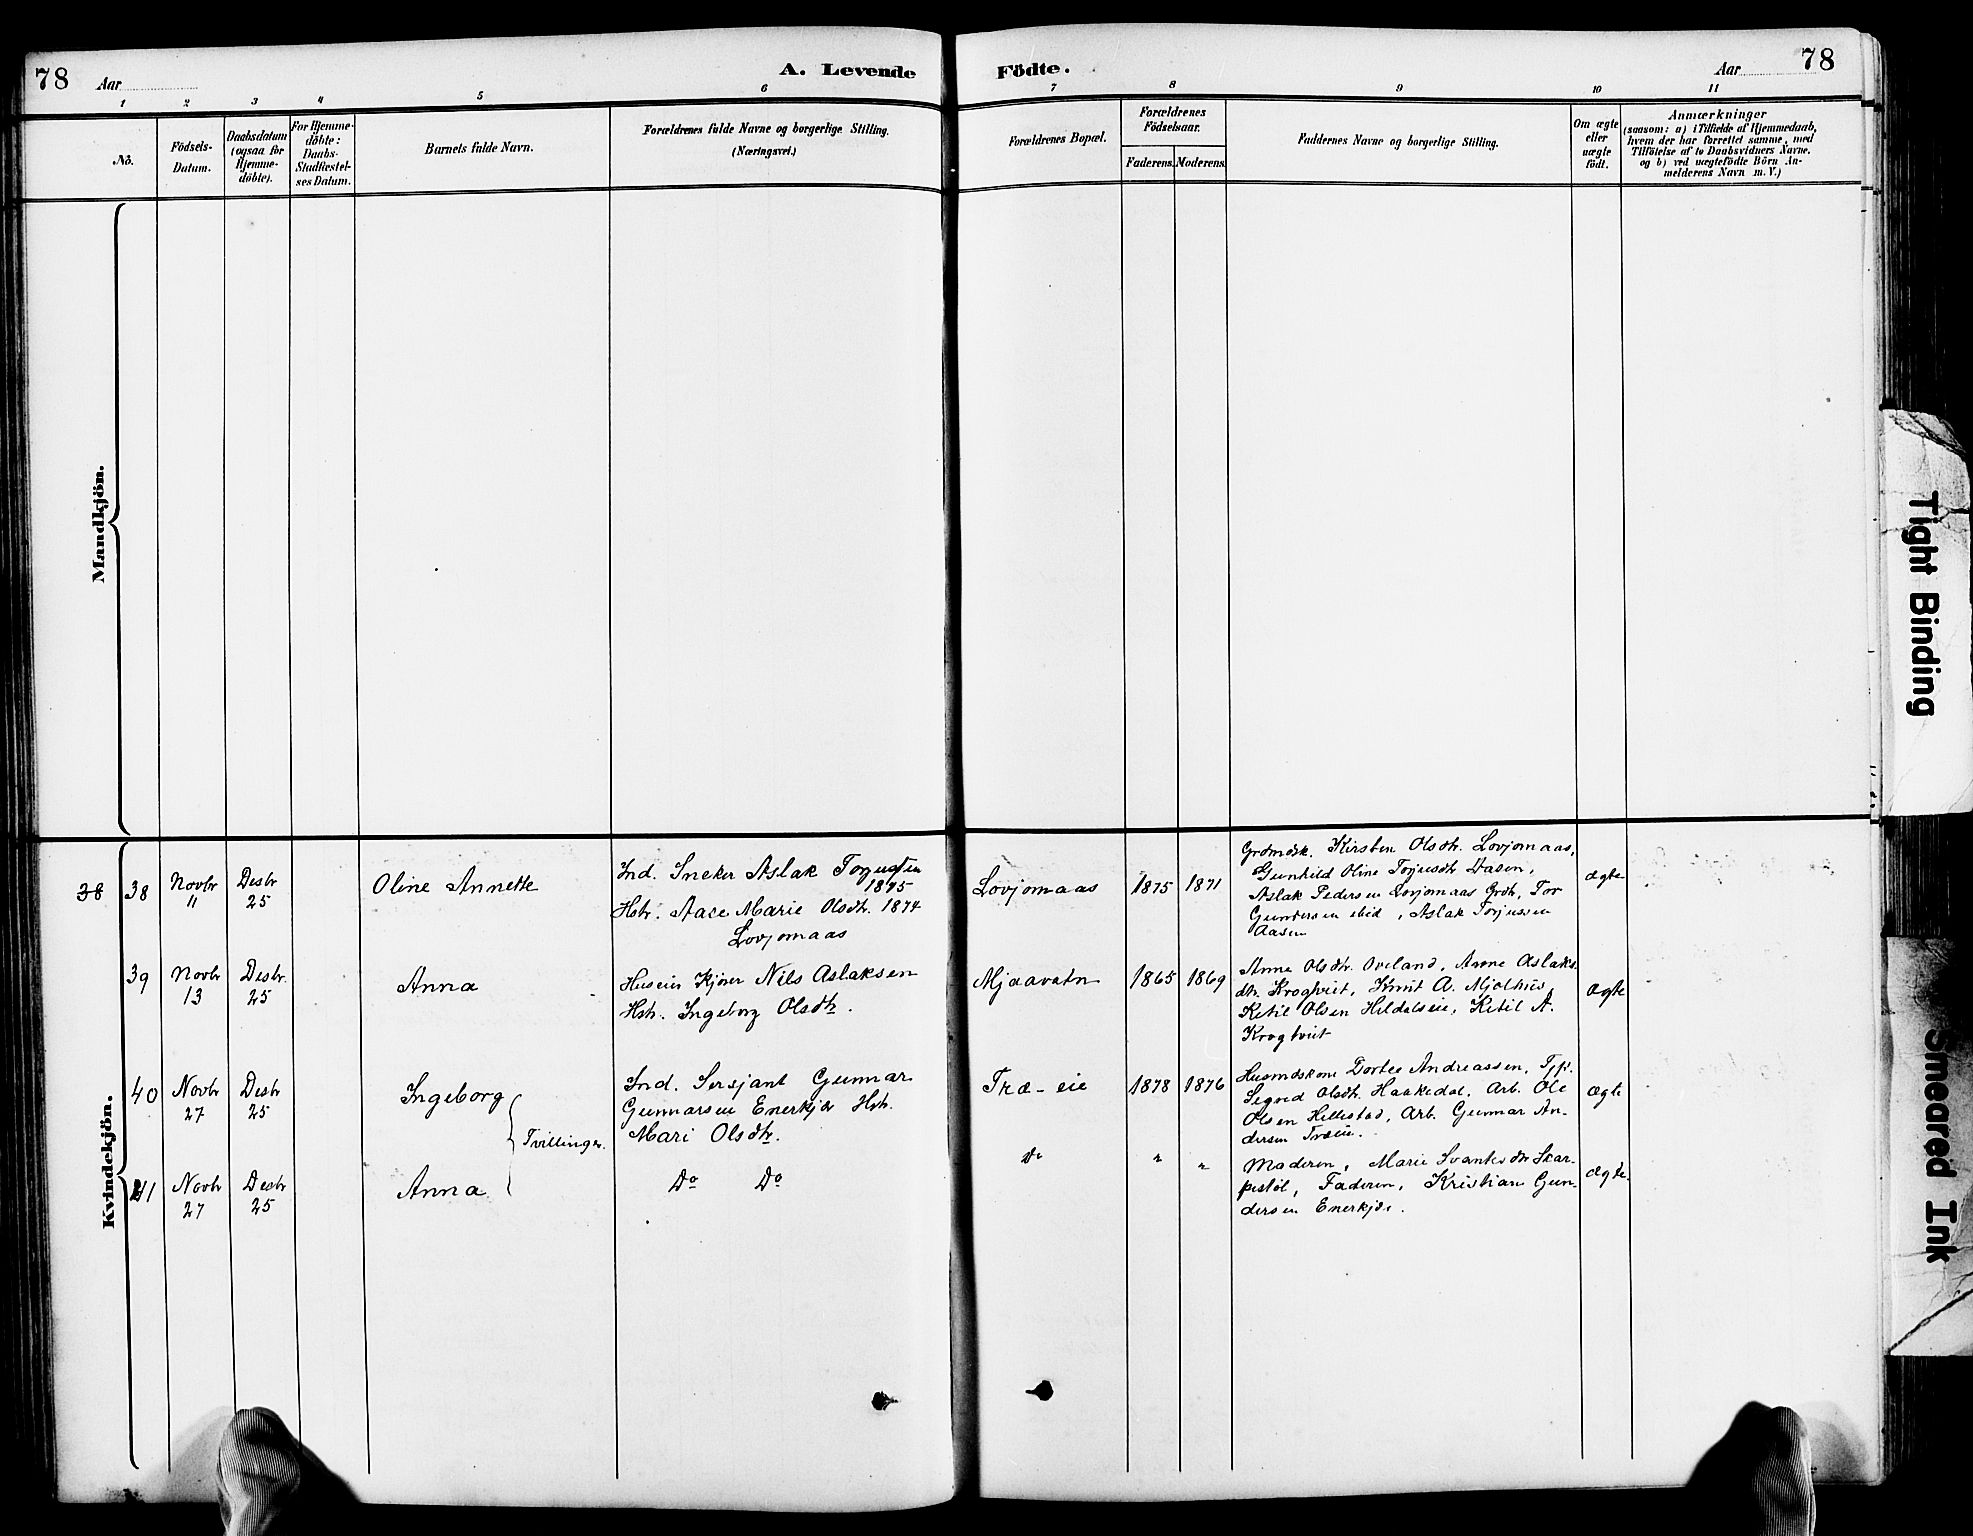 78
Aar
A. Levende
Födte.
Aar
78
1
2
3
4
5
6
7
8
9
10
11
No.
Födsels-
Datum.
Daabsdatum
(ogsaa for
Hjemme-
döbte).
For Hjemme-
döbte:
Daabs-
Stadfæstel-
ses Datum.
Barnets fulde Navn.
Forældrenes fulde Navne og borgerlige Stilling.
(Næringsvei.)
Forældrenes Bopæl.
Forældrenes
Födselsaar.
Faderens.
Moderens.
Faddernes Navne og borgerlige Stilling.
Om ægte
eller
uægte
födt.
Anmærkninger
(saasom: a) i Tilfælde af Hjemmedaab,
hvem der har forrettet samme, med
Tilföielse af to Daabsvidners Navne.
og b) ved uægtefödte Börn An-
melderens Navn m. V.)
Mandkjön.
Kvindekjön.
38 38
Novbr
11
Desbr
25
Oline Annette
Ind. Sneker Aslak Torjussen
1875
Hstr. Aase Marie Olsdtr. 1874
Lovjomaas
Lovjomaas
1875
1871
Grdmdsk. Kirsten Olsdtr. Lovjomaas,
Gunhild Oline Torjusdtr Aasen,
Aslak Pedersen Lovjomaas Grdb, Tor
Gundersen ibid, Aslak Torjussen
Aasen
ægte
39
Novbr
13
Desbr.
25
Anna
Huseier Kjører Nils Aslaksen
Hstr. Ingeborg Olsdtr.
Mjaavatn
1865
1869
Anne Olsdtr. Oveland, Anne Aslaks
dtr. Krogtveit, Knut A. Mjølhus,
Ketil Olsen Hildalseie, Ketil A.
Krogtveit
Ægte
40
Novbr
27
Desbr
25
Ingeborg
Tvillinger.
Ind. Sersjant Gunnar
Gunnarsen Enerkjær Hstr.
Mari Olsdtr.
Træ-eie
1878
1876
Husmdskone Dortea Andreassen, Tjp.
Signed Olsdtr. Haakedal, Arb. Ole
Olsen Hillestad, Arb. Gunnar An-
dersen Træeie.
Ægte
41
Novbr
27
Desbr
25
Anna
Do Do
Do
"
"
Moderen, Marie Svantesdtr Skar-
pestøl, Faderen, Kristian Gun-
dersen Enerkjær.
Ægte.
Tight Binding
Smeared Ink